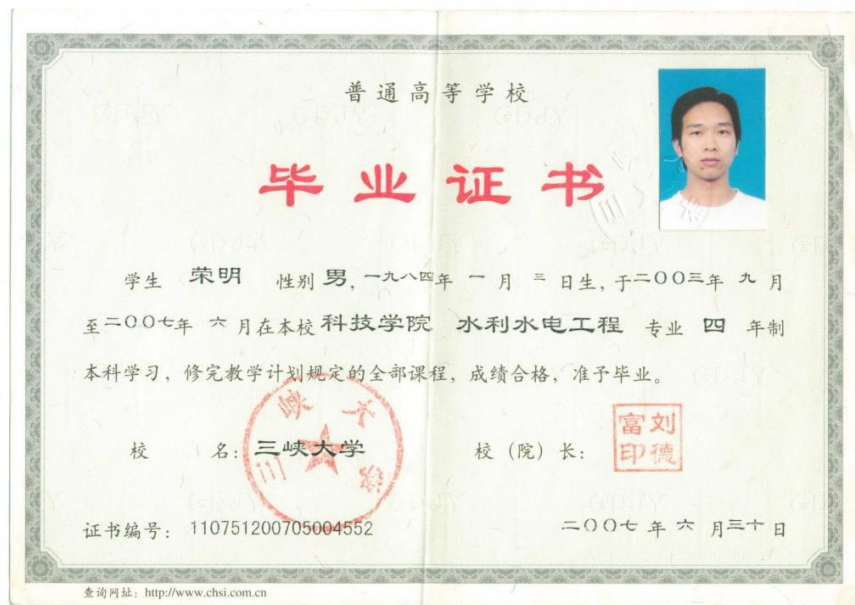 普通高等学校
毕业证书
学生 荣明 性别 男，一九八四年 一 月 三 日生，于二〇〇三年 九 月
至二〇〇七年 六 月在本校 科技学院 水利水电工程 专业 四 年制
本科学习，修完教学计划规定的全部课程，成绩合格，准予毕业。
校 名：三峡大学 校（院）长：刘德富印
三峡大学
证书编号：110751200705004552 二〇〇七 年 六 月三十日
查询网址：http://www.chsi.com.cn